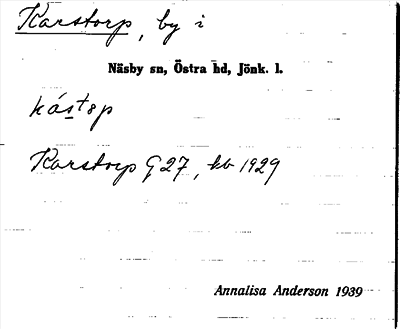 Karstorp, by i
Näsby sn, Östra hd, Jönk. l.
kástsp
Karstorp G 27, kb 1929
Annalisa Anderson 1939